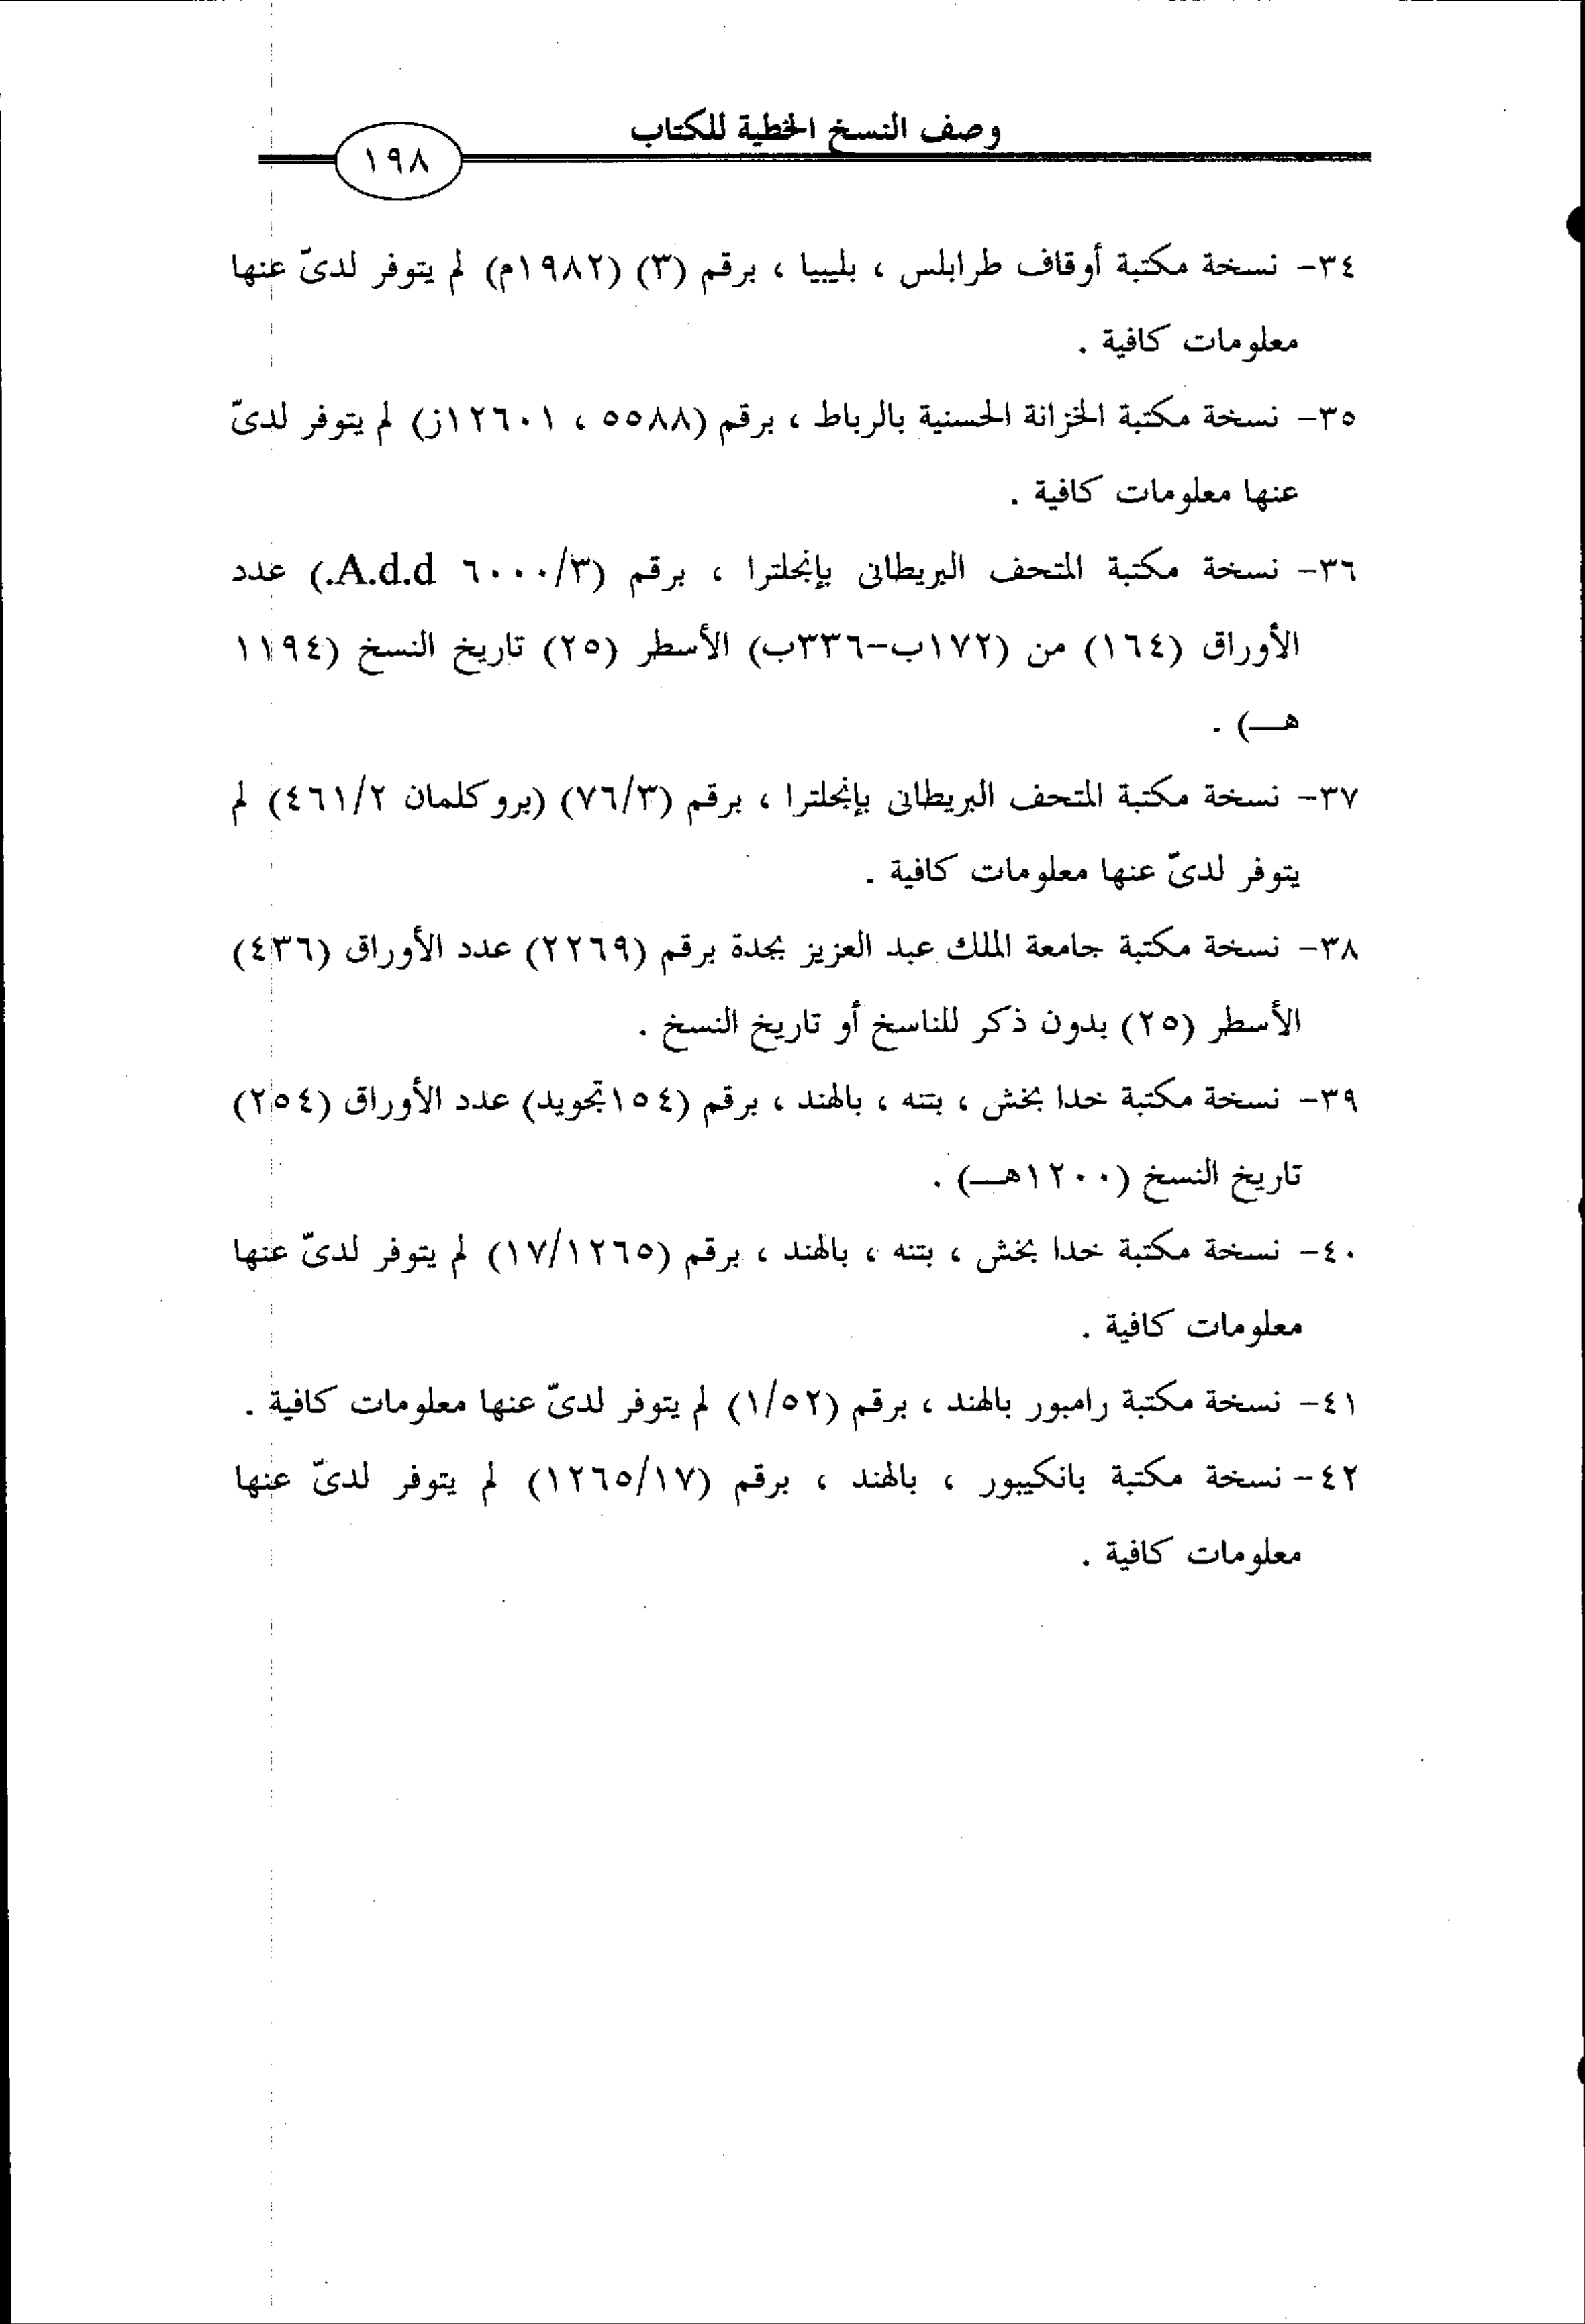 وصف النسخ الخطية للكتاب
١٩٨
٣٤- نسخة مكتبة أوقاف طرابلس ، بليبيا ، برقم (٣) (١٩٨٢م) لم يتوفر لدىّ عنها
معلومات كافية .
٣٥- نسخة مكتبة الخزانة الحسنية بالرباط ، برقم (٥٥٨٨ ، ١٢٦٠١ز) لم يتوفر لدىّ
عنها معلومات كافية .
٣٦- نسخة مكتبة المتحف البريطانى بإنجلترا ، برقم (٦٠٠٠/٣ A.d.d.) عدد
الأوراق (١٦٤) من (١٧٢ب-٣٣٦ب) الأسطر (٢٥) تاريخ النسخ (١١٩٤
هـــ) .
٣٧- نسخة مكتبة المتحف البريطانى بإنجلترا ، برقم (٧٦/٣) (بروكلمان ٤٦١/٢) لم
يتوفر لدىّ عنها معلومات كافية .
٣٨- نسخة مكتبة جامعة الملك عبد العزيز بجدة برقم (٢٢٦٩) عدد الأوراق (٤٣٦)
الأسطر (٢٥) بدون ذكر للناسخ أو تاريخ النسخ .
٣٩- نسخة مكتبة خدا بخش ، بتنه ، بالهند ، برقم (١٥٤تجويد) عدد الأوراق (٢٥٤)
تاريخ النسخ (١٢٠٠هـــ) .
٤٠- نسخة مكتبة خدا بخش ، بتنه ، بالهند ، برقم (١٧/١٢٦٥) لم يتوفر لدىّ عنها
معلومات كافية .
٤١- نسخة مكتبة رامبور بالهند ، برقم (١/٥٢) لم يتوفر لدىّ عنها معلومات كافية .
٤٢- نسخة مكتبة بانكيبور ، بالهند ، برقم (١٢٦٥/١٧) لم يتوفر لدىّ عنها
معلومات كافية .